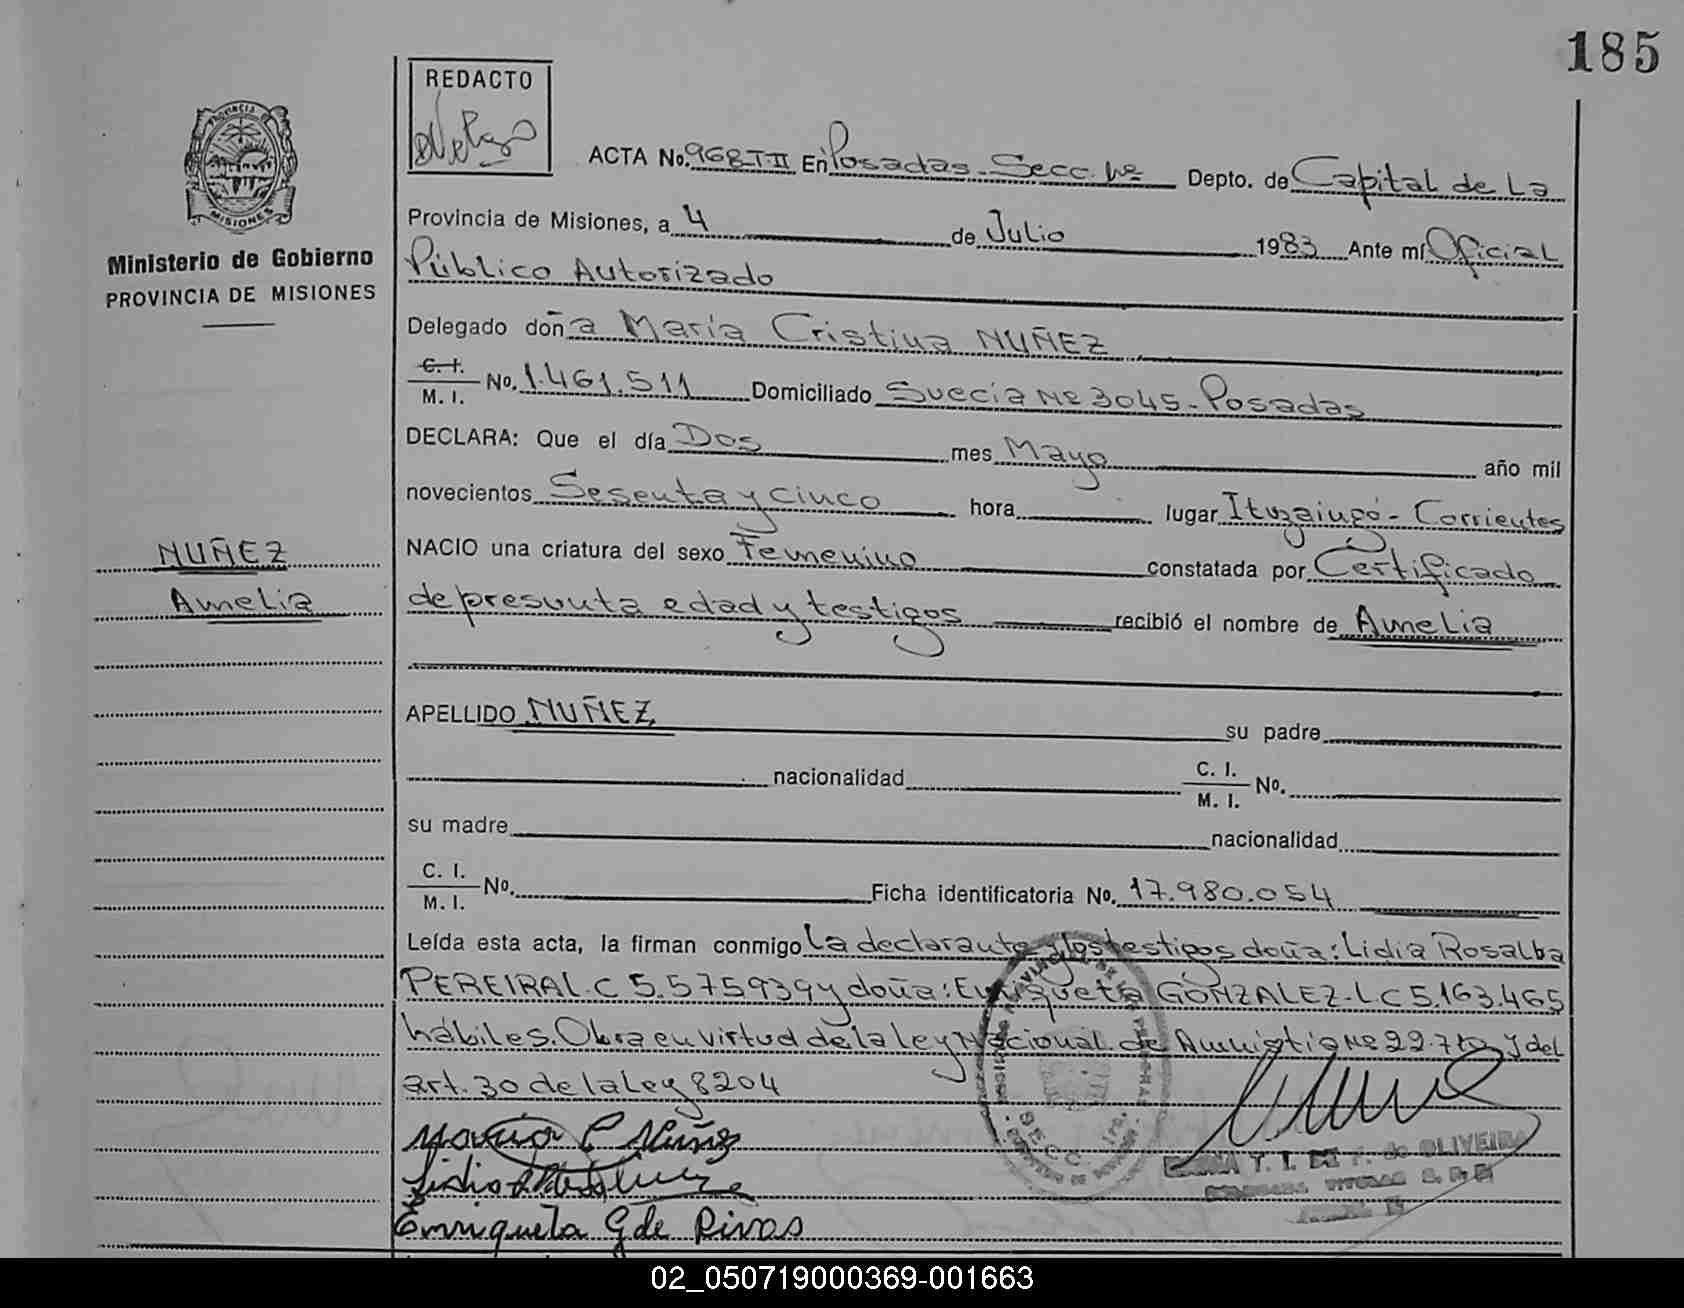 185
REDACTO
ACTA No. 968 T II En Posadas - Secc. 1ra Depto. de Capital de La
Provincia de Misiones, a 4 de Julio 1983 Ante mí Oficial
Público Autorizado
Delegado doña María Cristina NUÑEZ
C. I.
M. I. No. 1.461.511 Domiciliado Suecia Nº 3045 - Posadas
DECLARA: Que el día Dos mes Mayo año mil
novecientos Sesenta y cinco hora lugar Ituzaingó - Corrientes
NACIO una criatura del sexo Femenino constatada por Certificado
de presunta edad y testigos recibió el nombre de Amelia
APELLIDO NUÑEZ su padre
nacionalidad C. I.
M. I. No.
su madre nacionalidad
C. I.
M. I. No. Ficha identificatoria No. 17.980.054
Leída esta acta, la firman conmigo La declarante y los testigos doña: Lidia Rosalba
PEREIRA L.C 5.575939 y doña: Enriqueta GONZALEZ - L C 5.163.465
hábiles. Obra en virtud de la ley Nacional de Amnistia Nº 22.7 y del
art. 30 de la Ley 8204
María C Nuñez
Enriqueta G de Rivas
PROVINCIA DE MISIONES
Ministerio de Gobierno
PROVINCIA DE MISIONES
NUÑEZ
Amelia
SECC. 1ra.
T. I. DE F. de OLIVEIRA
02_050719000369-001663